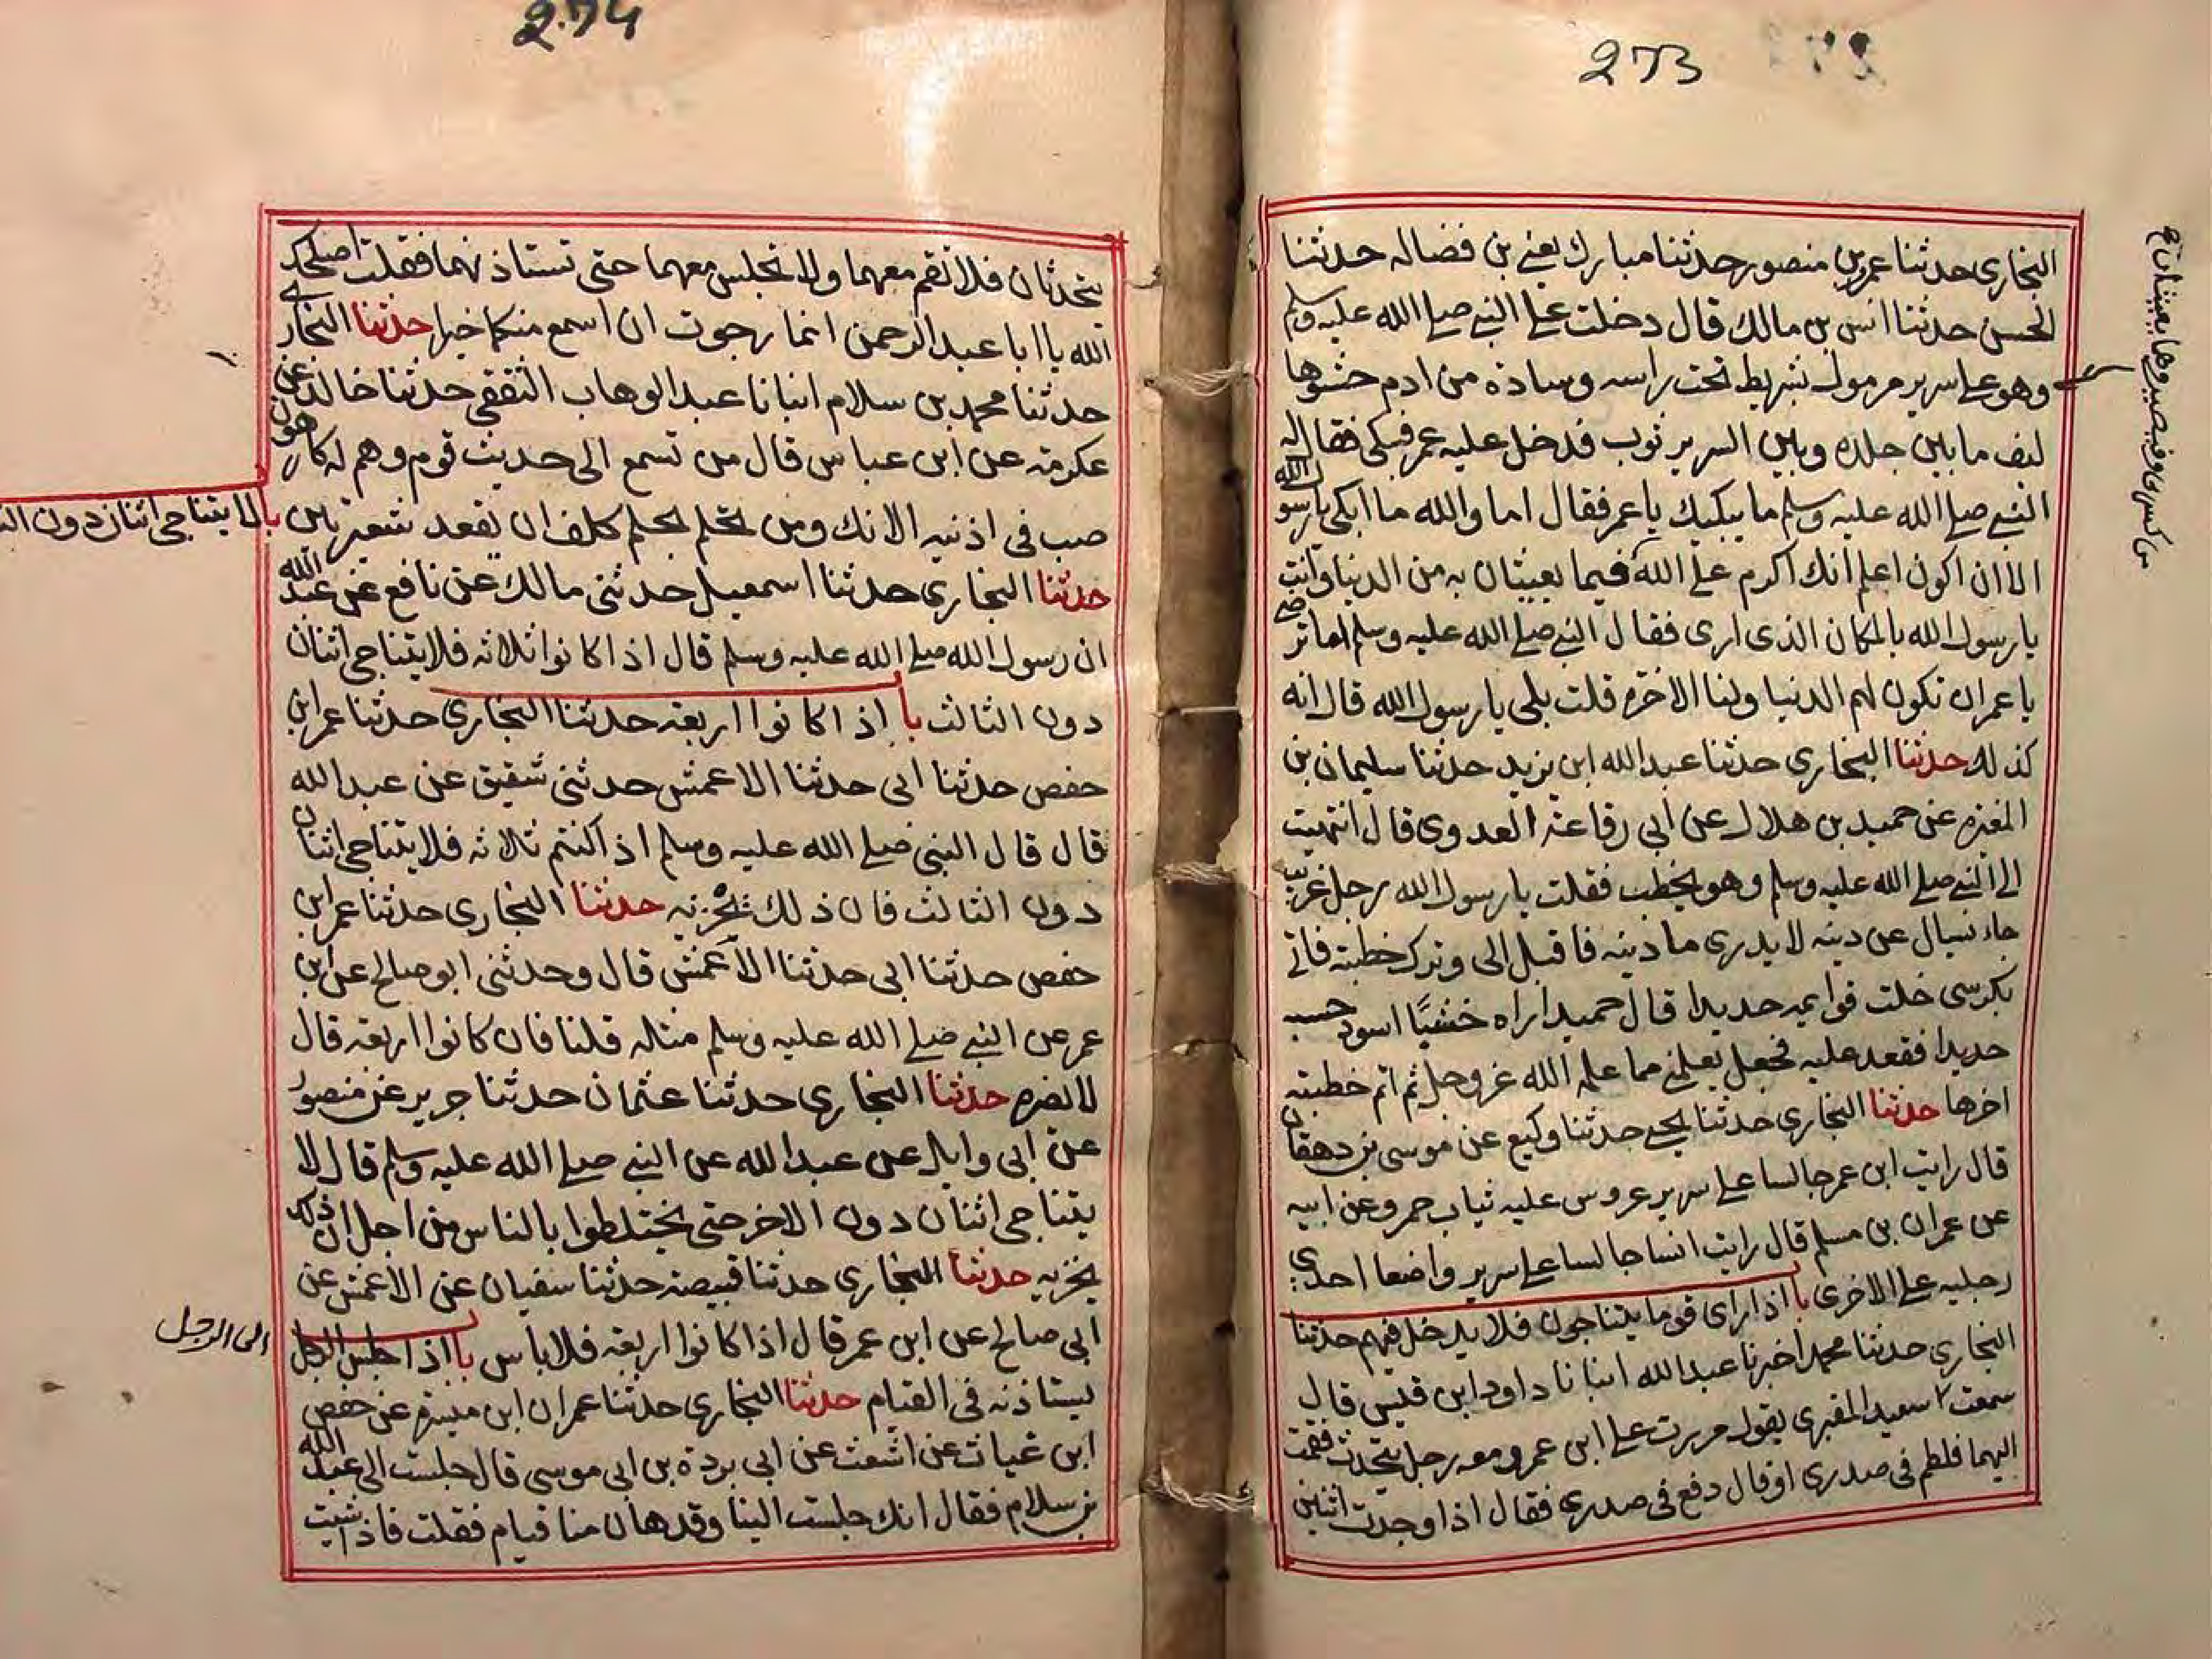 273
البخاری حدثنا عمرو بن منصور حدثنا مبارك يعنے بن فضاله حدثنا
الحسن حدثنا انس بن مالك قال دخلت علے النبے صلے الله عليه وسلم
وهو علے سرير مرمول بشريط تحت راسه وسادة من ادم حشوها
ليف ما بين جلده وبين السرير ثوب فدخل عليه عمر فبكى فقال له
النبے صلے الله عليه وسلم ما يبكيك يا عمر فقال اما والله ما ابكى يا رسول الله
الا ان اكون اعلم انك اكرم علے الله فيما يعيثان به من الدنيا وانت
يا رسول الله بالمكان الذى ارى فقال النبے صلے الله عليه وسلم اما ترضے
يا عمر ان تكون لهم الدنيا ولنا الاخرة قلت بلى يا رسول الله قال انه
كذلك حدثنا البخاري حدثنا عبد الله ابن يزيد حدثنا سليمان بن
المغيره عن حميد بن هلال عن ابي رفاعة العدوى قال انتهيت
الى النبے صلے الله عليه وسلم وهو يخطب فقلت يا رسول الله رجل غريب
جاء يسال عن دينه لا يدرى ما دينه فاقبل الى وترك خطبته فاتے
بكرسى خلت قوايمه حديدا قال حميد اراه خشبًا اسود حسبه
حديدا فقعد عليه فجعل يعلمنے مما علمه الله عز وجل ثم اتم خطبته
اخرها حدثنا البخاري حدثنا يحيے حدثنا وكيع عن موسى بن دهقان
قال رايت ابن عمر جالسا علے سرير عروس عليه ثياب حمر وعن ابيه
عن عمران بن مسلم قال رايت انسا جالسا علے سرير واضعا احدى
رجليه علے الاخرى با اذا راى قوما يتناجون فلا يدخل فيهم حدثنا
البخاري حدثنا محمد اخبرنا عبد الله انبانا داود ابن قيس قال
سمعت سعيد المقبرى يقول مررت علے ابن عمر ومعه رجل يتحدث فقمت
اليهما فلطم فى صدرى او قال دفع فى صدرى فقال اذا وجدت اثنين
من كسرى وقيصر وهما يعيثان
2.74
يتحدثان فلا تقم معهما ولا تجلس معهما حتى تستاذنهما فقلت اصلحك
الله يا ابا عبد الرحمن انما رجوت ان اسمع منكما خيرا حدثنا البخاري
حدثنا محمد بن سلام انبانا عبد الوهاب الثقفى حدثنا خالد عن
عكرمة عن ابن عباس قال من تسمع الى حديث قوم وهم له كارهون
صب فى اذنيه الانك ومن تحلم بحلم كلف ان يعقد شعيرتين
با لا يتناجى اثنان دون
حدثنا البخاري حدثنا اسمعيل حدثنى مالك عن نافع عن عبد الله
ان رسول الله صلے الله عليه وسلم قال اذا كانوا ثلاثه فلا يتناجى اثنان
دون الثالث با اذا كانوا اربعة حدثنا البخاري حدثنا عمر ابن
حفص حدثنا ابى حدثنا الاعمش حدثنى شقيق عن عبد الله
قال قال النبى صلے الله عليه وسلم اذا كنتم ثلاثه فلا يتناجى اثنان
دون الثالث فان ذلك يحزنه حدثنا البخاري حدثنا عمر ابن
حفص حدثنا ابى حدثنا الاعمش قال وحدثنى ابو صالح عن ابن
عمر عن النبے صلے الله عليه وسلم مثله قلنا فان كانوا اربعة قال
لا يضره حدثنا البخاري حدثنا عثمان حدثنا جرير عن منصور
عن ابى وايل عن عبد الله عن النبے صلے الله عليه وسلم قال لا
يتناجى اثنان دون الاخر حتى يختلطوا بالناس من اجل ان ذلك
يحزنه حدثنا البخاري حدثنا قبيصة حدثنا سفيان عن الاعمش عن
ابى صالح عن ابن عمر قال اذا كانوا اربعة فلا باس با اذا جلس الرجل
الى الرجل
يستاذنه فى القيام حدثنا البخاري حدثنا عمران ابن ميسرة عن حفص
ابن غياث عن اشعث عن ابى بردة بن ابى موسى قال جلست الى عبد الله
بن سلام فقال انك جلست الينا وقد هان منا قيام فقلت فاذا شيت